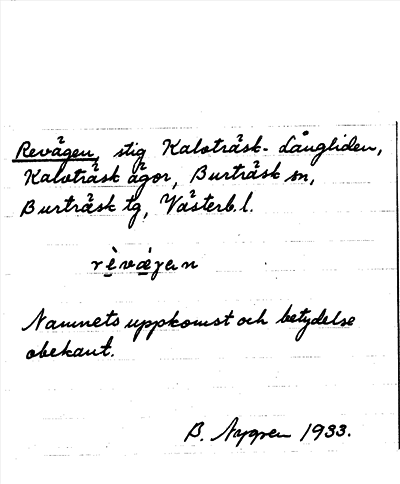 Revägen, stig Kaloträsk- Långliden,
Kaloträsk ägor, Burträsk sn,
Burträsk tg, Västerb. l.
rèvæ̀gan
Namnets uppkomst och betydelse
obekant.
B. Nygren 1933.